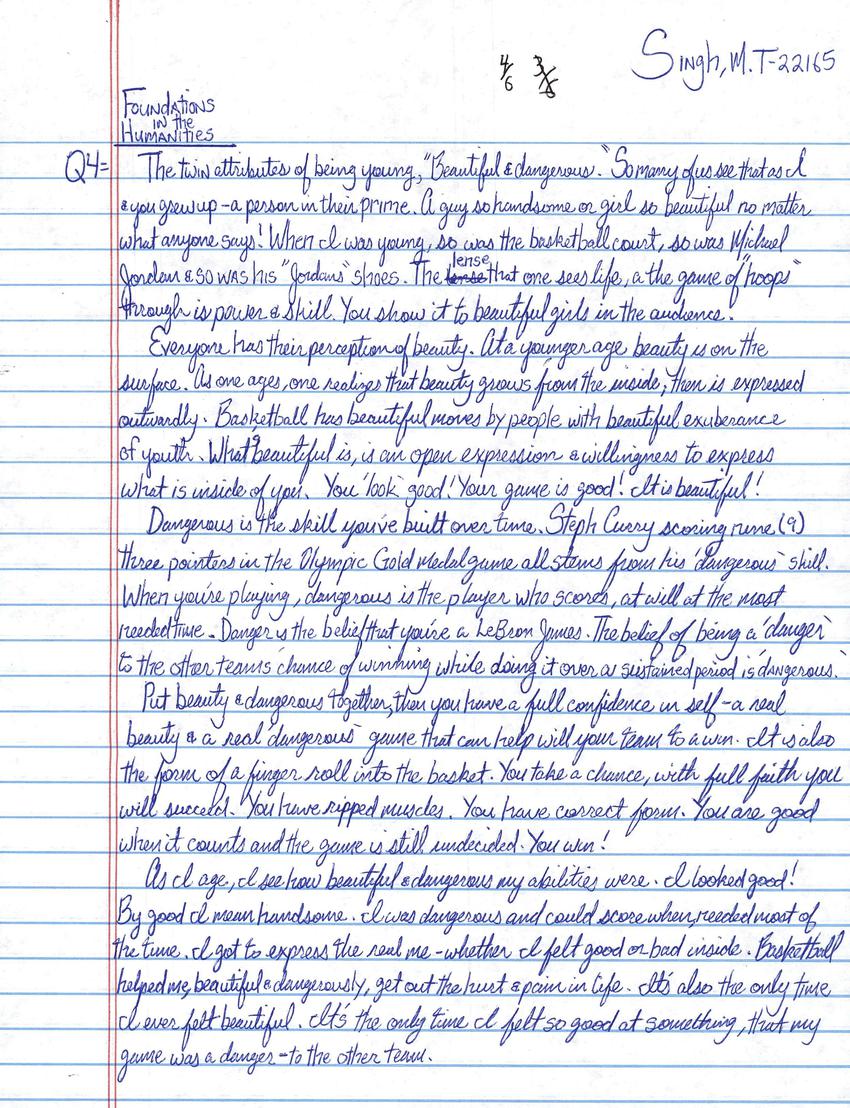 Singh, M. T-22165
4/6 3/6
Foundations
in the
Humanities
Q4= The twin attributes of being young, "Beautiful & dangerous." So many of us see that as I
& you grew up - a person in their prime. A guy so handsome or girl so beautiful no matter
what anyone says! When I was young, so was the basketball court, so was Michael
lense
Jordan & so was his "Jordans" shoes. The that one sees life, a the game of "hoops"
through is power & skill. You show it to beautiful girls in the audience.
Everyone has their perception of beauty. At a younger age beauty is on the
surface. As one ages, one realizes that beauty grows from the inside, then is expressed
outwardly. Basketball has beautiful moves by people with beautiful exuberance
of youth. What beautiful is, is an open expression & willingness to express
what is inside of you. You 'look' good! Your game is good! It is beautiful!
Dangerous is the skill you've built over time. Steph Curry scoring nine (9)
three pointers in the Olympic Gold medal game all stems from his 'dangerous' skill.
When you're playing, dangerous is the player who scores, at will at the most
needed time. Danger is the belief that you're a LeBron James. The belief of being a 'danger'
to the other teams' chance of winning while doing it over a sustained period is 'dangerous.'
Put beauty & dangerous together, then you have a full confidence in self - a real
beauty & a real 'dangerous' game that can help will your team to a win. It is also
the form of a finger roll into the basket. You take a chance, with full faith you
will succeed. You have ripped muscles. You have correct form. You are good
when it counts and the game is still undecided. You win!
As I age, I see how beautiful & dangerous my abilities were. I looked good!
By good I mean handsome. I was dangerous and could score when, needed most of
the time. I got to express the real me - whether I felt good or bad inside. Basketball
helped me, beautiful & dangerously, get out the hurt & pain in life. It's also the only time
I ever felt beautiful. It's the only time I felt so good at something, that my
game was a danger - to the other team.